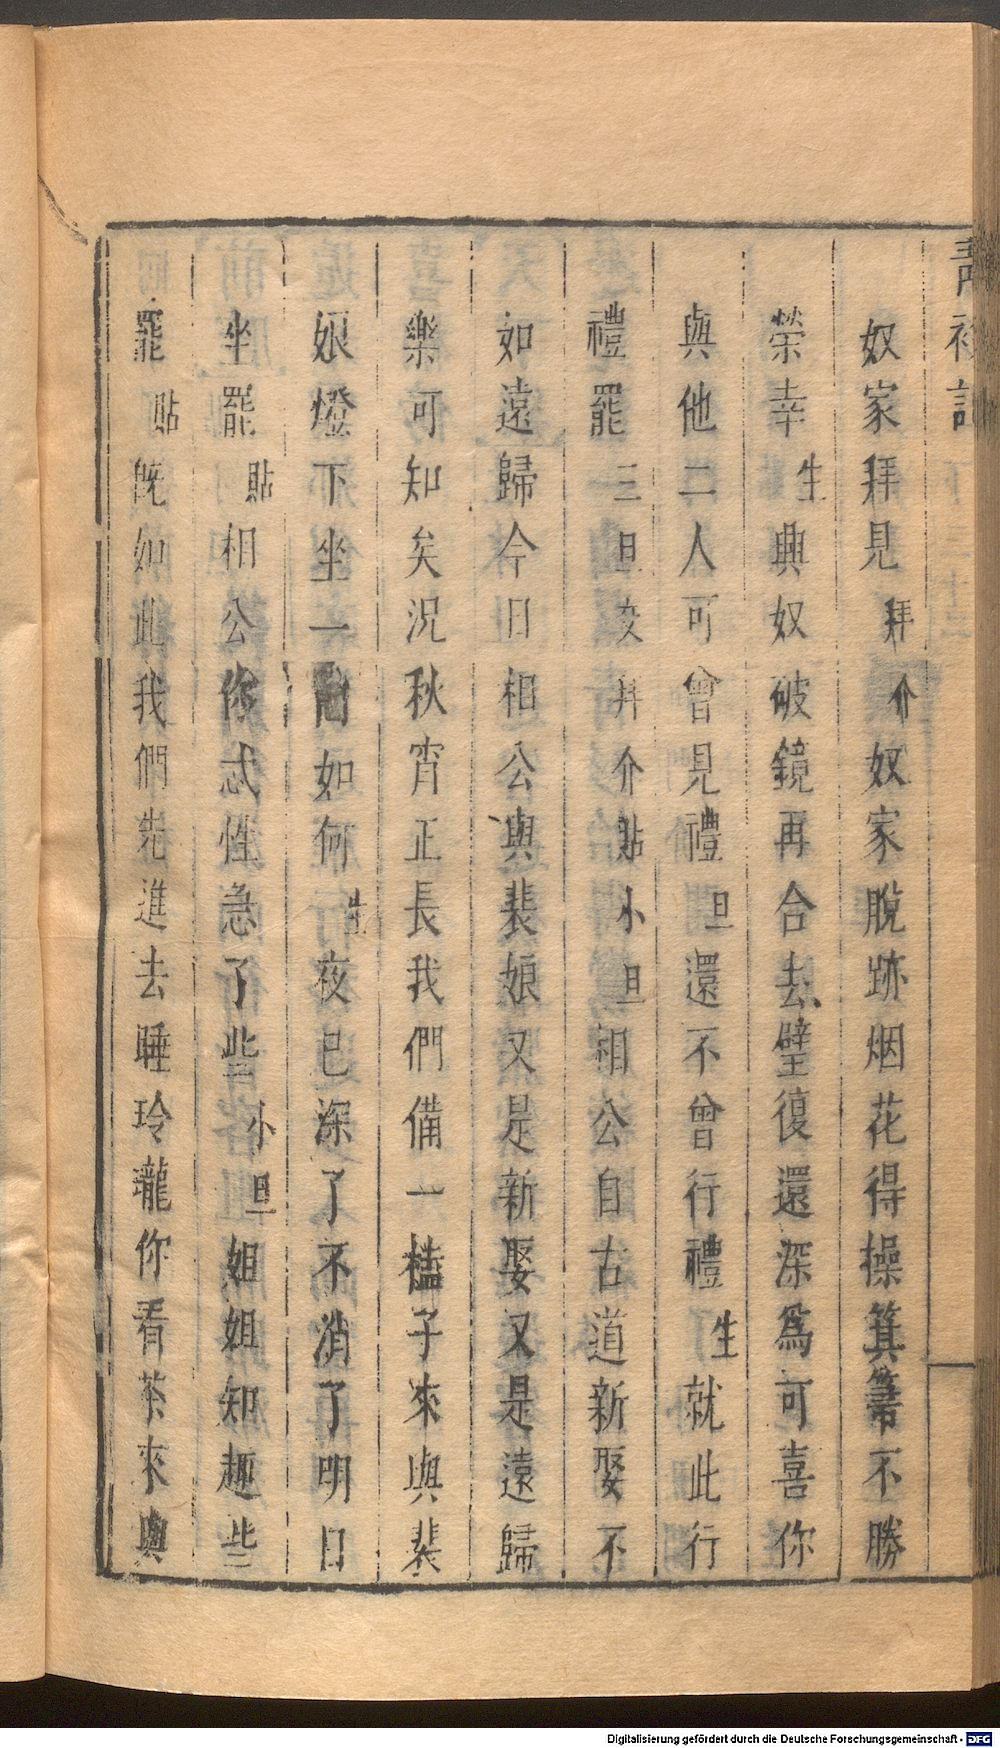 青衫記
奴家拜見拜介奴家脫跡烟花得操箕箒不勝
榮幸生興奴破鏡再合去璧復還深爲可喜你
與他二人可曾見禮旦還不曾行禮生就此行
禮罷三旦交拜介貼小旦相公自古道新娶不
如遠歸今日相公與裴娘又是新娶又是遠歸
樂可知矣況秋宵正長我們備一榼子來與裴
娘燈下坐一囬如何生夜已深了不消了明日
坐罷貼相公你忒性急了些小旦姐姐知趣些
罷貼旣如此我們先進去睡玲瓏你看茶來與
Digitalisierung gefördert durch die Deutsche Forschungsgemeinschaft - DFG